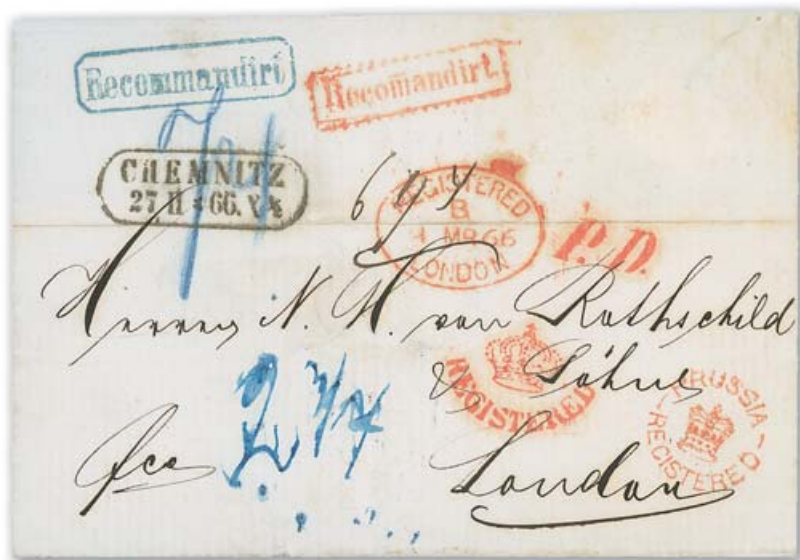 Recommandirt
Recomandirt.
CHEMNITZ
27 II 66.
REGISTERED
B
MR 66
LONDON
P.D.
Herren N. M. von Rothschild
& Söhne
REGISTERED
PRUSSIA
REGISTERED
fco
London